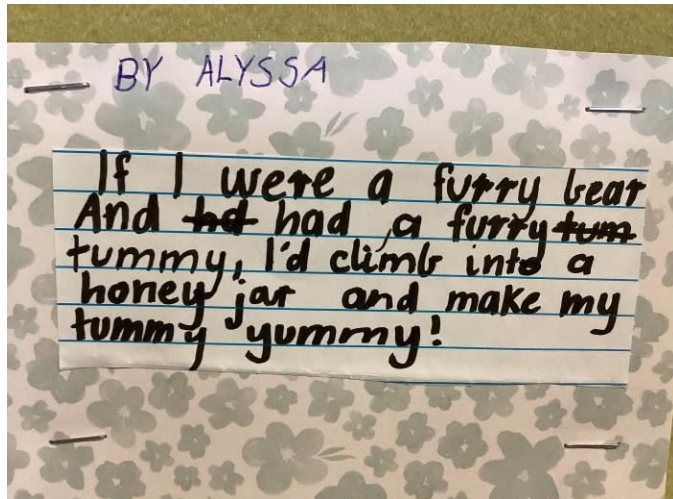 BY ALYSSA
If I were a furry bear
And hd had a furry tum
tummy, I'd climb into a
honey jar and make my
tummy yummy!